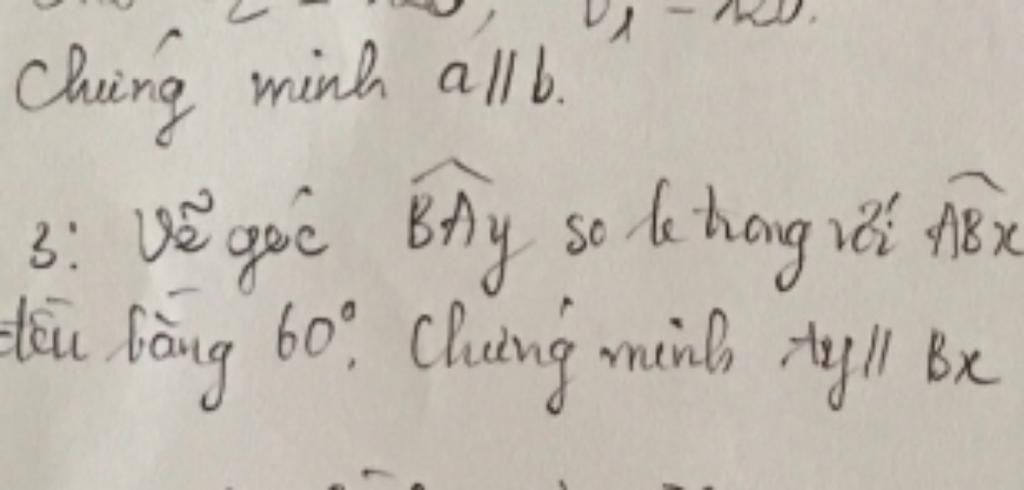 Chứng minh a//b.
3: Vẽ góc BAy so le trong với ABx
đều bằng 60°. Chứng minh Ay// Bx